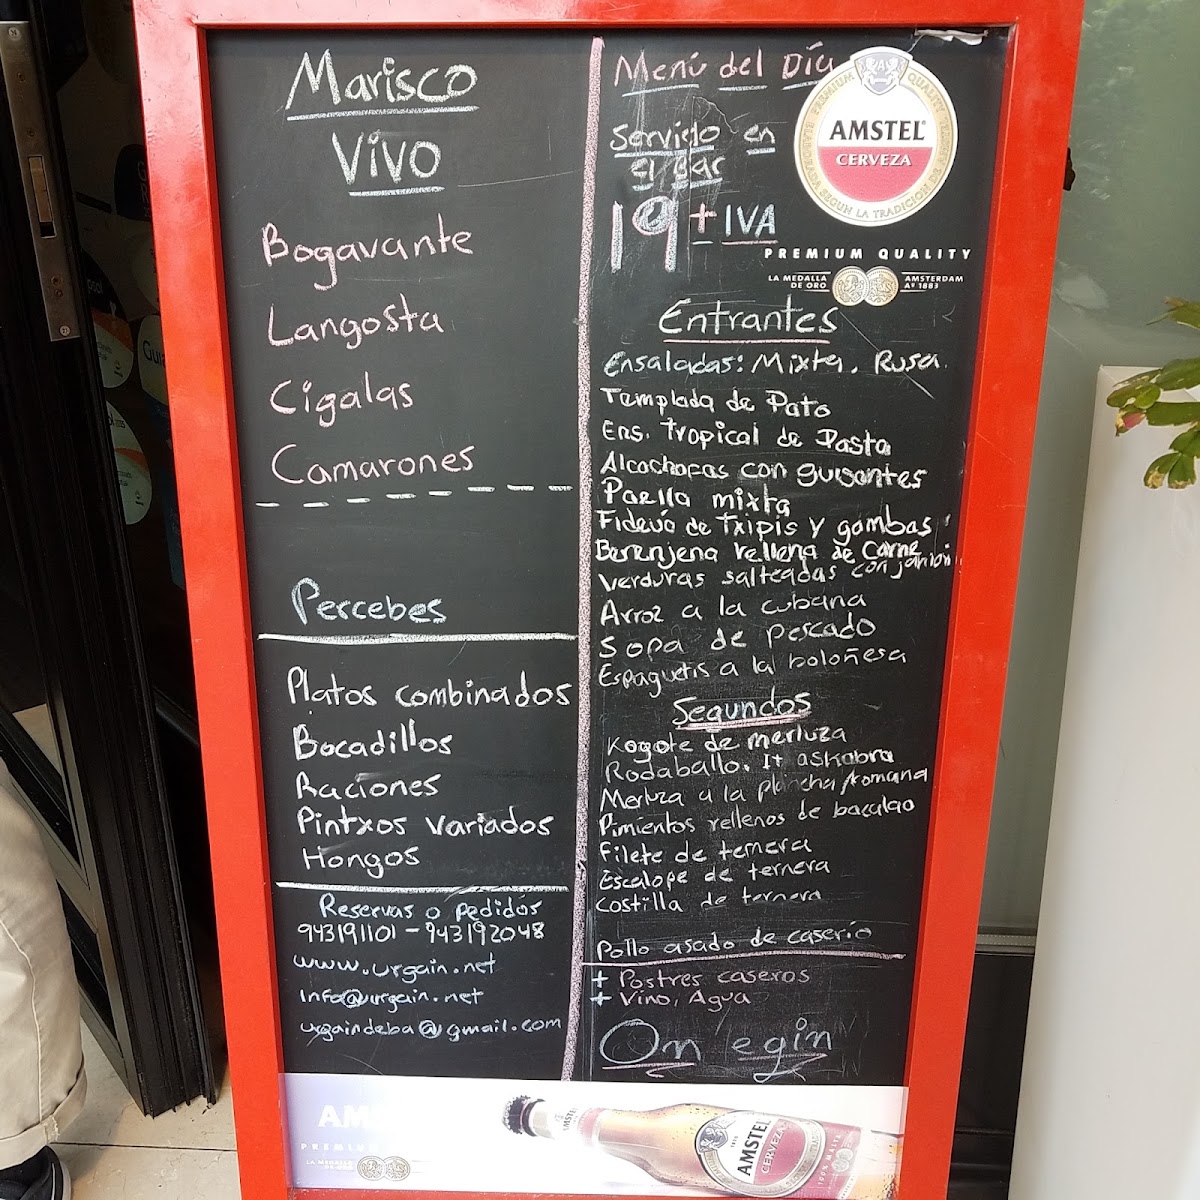 Marisco
Vivo
Bogavante
Langosta
Cigalas
Camarones
Percebes
Platos combinados
Bocadillos
Raciones
Pintxos variados
Hongos
Reservas o pedidos
943191101 - 943192048
www.urgain.net
Info@urgain.net
urgaindeba@gmail.com
Menú del Día
Servido en
el Bar
19 + IVA
Entrantes
Ensaladas: Mixta, Rusa
Templada de Pato
Ens. Tropical de Pasta
Alcachofas con guisantes
Paella mixta
Fideuá de Txipis y gambas
Berenjena rellena de carne
Verduras salteadas con jamón
Arroz a la cubana
Sopa de pescado
Espaguetis a la boloñesa
Segundos
Kogote de merluza
Rodaballo. It askabra
Merluza a la plancha/romana
Pimientos rellenos de bacalao
Filete de ternera
Escalope de ternera
Costilla de ternera
Pollo asado de caserio
+ Postres caseros
+ Vino, Agua
On egin
PREMIUM QUALITY
ELABORADA SEGUN LA TRADICION DE
AMSTEL
CERVEZA
PREMIUM QUALITY
LA MEDALLA
DE ORO
AMSTERDAM
Aº 1883
AM
PREMIUM
LA MEDALLA
DE ORO
AMSTEL
AMSTEL
CERVEZA
100% MALTA